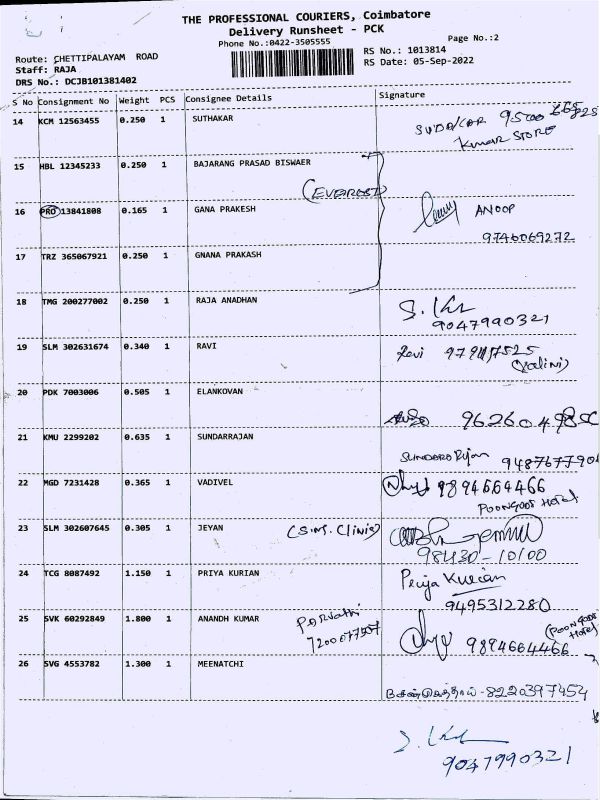 THE PROFESSIONAL COURIERS, Coimbatore
Delivery Runsheet - PCK
Phone No.:0422-3505555
Page No.:2
Route: CHETTIPALAYAM ROAD
Staff: RAJA
DRS No.: DCJB101381402
RS No.: 1013814
RS Date: 05-Sep-2022
S No Consignment No Weight PCS Consignee Details Signature
14 KCM 12563455 0.250 1 SUTHAKAR
Kumar STORE
15 HBL 12345233 0.250 1 BAJARANG PRASAD BISWAER
(EVEREST)
16 PRO 13841808 0.165 1 GANA PRAKESH ANOOP
9746069272
17 TRZ 365067921 0.250 1 GNANA PRAKASH
18 TMG 200277002 0.250 1 RAJA ANADHAN S. Kr
9047990321
19 SLM 302631674 0.340 1 RAVI Ravi
20 PDK 7003006 0.505 1 ELANKOVAN
21 KMU 2299202 0.635 1 SUNDARRAJAN
22 MGD 7231428 0.365 1 VADIVEL 9894664466
POONGODI HOTEL
23 SLM 302607645 0.305 1 JEYAN (S.M. Clinic)
98430-10100
24 TCG 8087492 1.150 1 PRIYA KURIAN Priya Kurian
9495312280
25 SVK 60292849 1.800 1 ANANDH KUMAR Parvathi
9894664466 (POONGODI HOTEL)
26 SVG 4553782 1.300 1 MEENATCHI
8220397454
S. Kr
9047990321